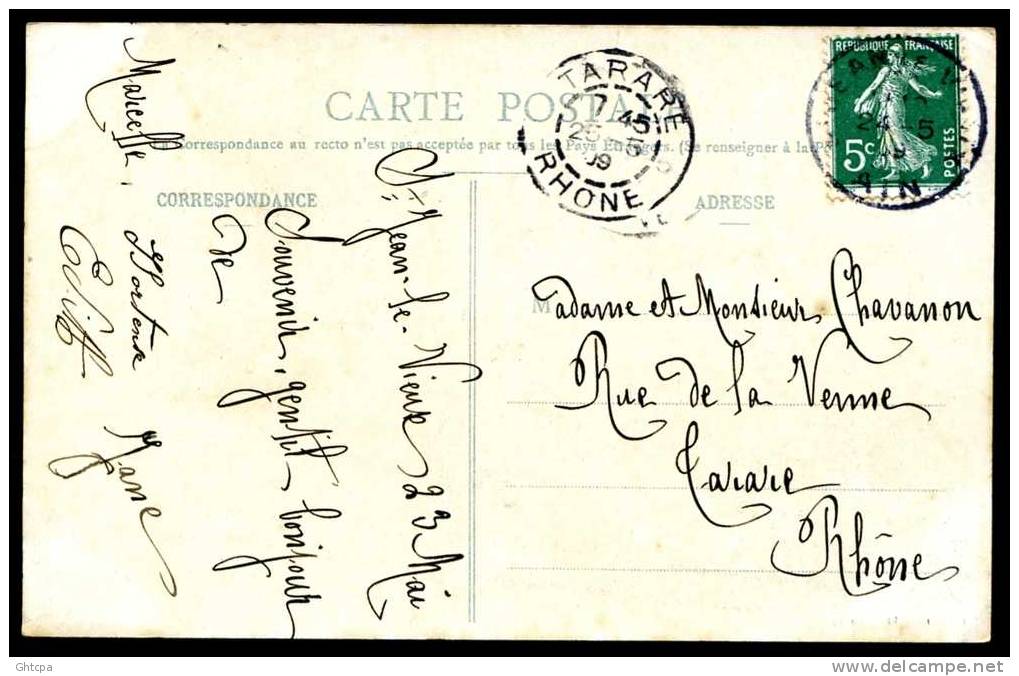 CARTE POSTALE
La Correspondance au recto n'est pas acceptée par tous les Pays Etrangers. (Se renseigner à la Poste)
CORRESPONDANCE
ADRESSE
TARARE
7 45
25 - 5
09
RHONE
REPUBLIQUE FRANÇAISE
5c
POSTES
24 5
09
AIN
St Jean-le-Vieux 23 Mai
Souvenir, gentil bonjour
de
Marcelle,
Hortense
Edith
Jane
Madame et Monsieur Chavanon
Rue de la Venne
Tarare
Rhône
Ghtcpa
www.delcampe.net